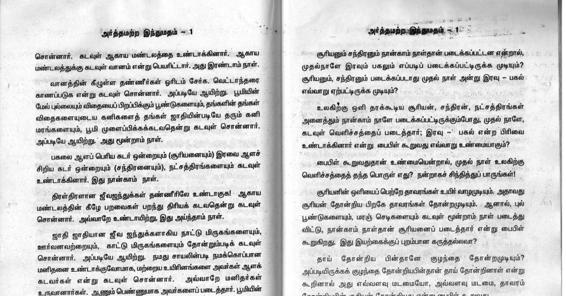 அர்த்தமற்ற இந்துமதம் - 1
சொன்னார். கடவுள் ஆகாய மண்டலத்தை உண்டாக்கினார். ஆகாய
மண்டலத்துக்கு கடவுள் வானம் என்று பெயரிட்டார். அது இரண்டாம் நாள்.
வானத்தின் கீழுள்ள தண்ணீர்கள் ஓரிடம் சேர்க. வெட்டாந்தரை
காணப்படுக என்று கடவுள் சொன்னார். அப்படியே ஆயிற்று. பூமியின்
மேல் புல்லையும் விதையைப் பிறப்பிக்கும் பூண்டுகளையும், தங்களின் தங்கள்
விதைகளையுடைய கனிகளைத் தங்கள் ஜாதியின்படியே தரும் கனி
மரங்களையும், பூமி முளைப்பிக்கக்கடவதென்று கடவுள் சொன்னார்.
அப்படியே ஆயிற்று. அது மூன்றாம் நாள்.
பகலை ஆளப் பெரிய சுடர் ஒன்றையும் (சூரியனையும்) இரவை ஆளச்
சிறிய சுடர் ஒன்றையும் (சந்திரனையும்), நட்சத்திரங்களையும் கடவுள்
உண்டாக்கினார். இது நான்காம் நாள்.
திரள்திரளான ஜீவஜந்துக்கள் தண்ணீரிலே உண்டாகுக! ஆகாய
மண்டலத்தின் கீழே பறவைகள் பறந்து திரியக் கடவதென்று கடவுள்
சொன்னார். அவ்வாறே உண்டாயிற்று. இது அய்ந்தாம் நாள்.
ஜாதி ஜாதியான ஜீவ ஐந்துக்களாகிய நாட்டு மிருகங்களையும்,
ஊர்வனவற்றையும், காட்டு மிருகங்களையும் தோன்றும்படிக் கடவுள்
சொன்னார். அப்படியே ஆயிற்று. நமது சாயலின்படி நமக்கொப்பான
மனிதனை உண்டாக்குவோமாக, மற்றைய உயிரினங்களை அவர்கள் ஆளக்
கடவர்கள் என்று கடவுள் சொன்னார். அவ்வாறே மனிதர்கள்
உருவானார்கள். ஆணும் பெண்ணுமாக அவர்களைப் படைத்தார். பூமியின்
அர்த்தமற்ற இந்துமதம் - 1
சூரியனும் சந்திரனும் நான்காம் நாள்தான் படைக்கப்பட்டன என்றால்,
முதல்நாளே இரவும் பகலும் எப்படிப் படைக்கப்பட்டிருக்க முடியும்?
சூரியனும், சந்திரனும் படைக்கப்படாது முதல் நாள் அன்று இரவு - பகல்
எவ்வாறு ஏற்பட்டிருக்க முடியும்?
உலகிற்கு ஒளி தரக்கூடிய சூரியன், சந்திரன், நட்சத்திரங்கள்
அனைத்தும் நான்காம் நாளே படைக்கப்பட்டிருக்கும்போது, முதல் நாளே,
கடவுள் வெளிச்சத்தைப் படைத்தார்; இரவு - பகல் என்ற பிரிவை
உண்டாக்கினார் என்று பைபிள் கூறுவது எவ்வாறு உண்மையாகும்?
பைபிள் கூறுவதுதான் உண்மையென்றால், முதல் நாள் உலகிற்கு
வெளிச்சத்தைத் தந்த பொருள் எது? நன்றாகச் சிந்தித்துப் பாருங்கள்!
சூரியனின் ஒளியைப் பெற்றே தாவரங்கள் உயிர் வாழமுடியும். அதாவது
சூரியன் தோன்றிய பிறகே தாவரங்கள் தோன்றமுடியும். ஆனால், புல்
பூண்டுகளையும், மரஞ் செடிகளையும் கடவுள் மூன்றாம் நாள் படைத்து
விட்டு, நான்காம் நாள்தான் சூரியனைப் படைத்தார் என்று பைபிள்
கூறுகிறது. இது இயற்கைக்குப் புறம்பான கருத்தல்லவா?
தாய் தோன்றிய பின்தானே குழந்தை தோன்றமுடியும்?
அப்படியிருக்கக் குழந்தை தோன்றியபின்தான் தாய் தோன்றினாள் என்று
கூறினால் அது எவ்வளவு மடமையோ, அவ்வளவு மடமை, தாவரம்